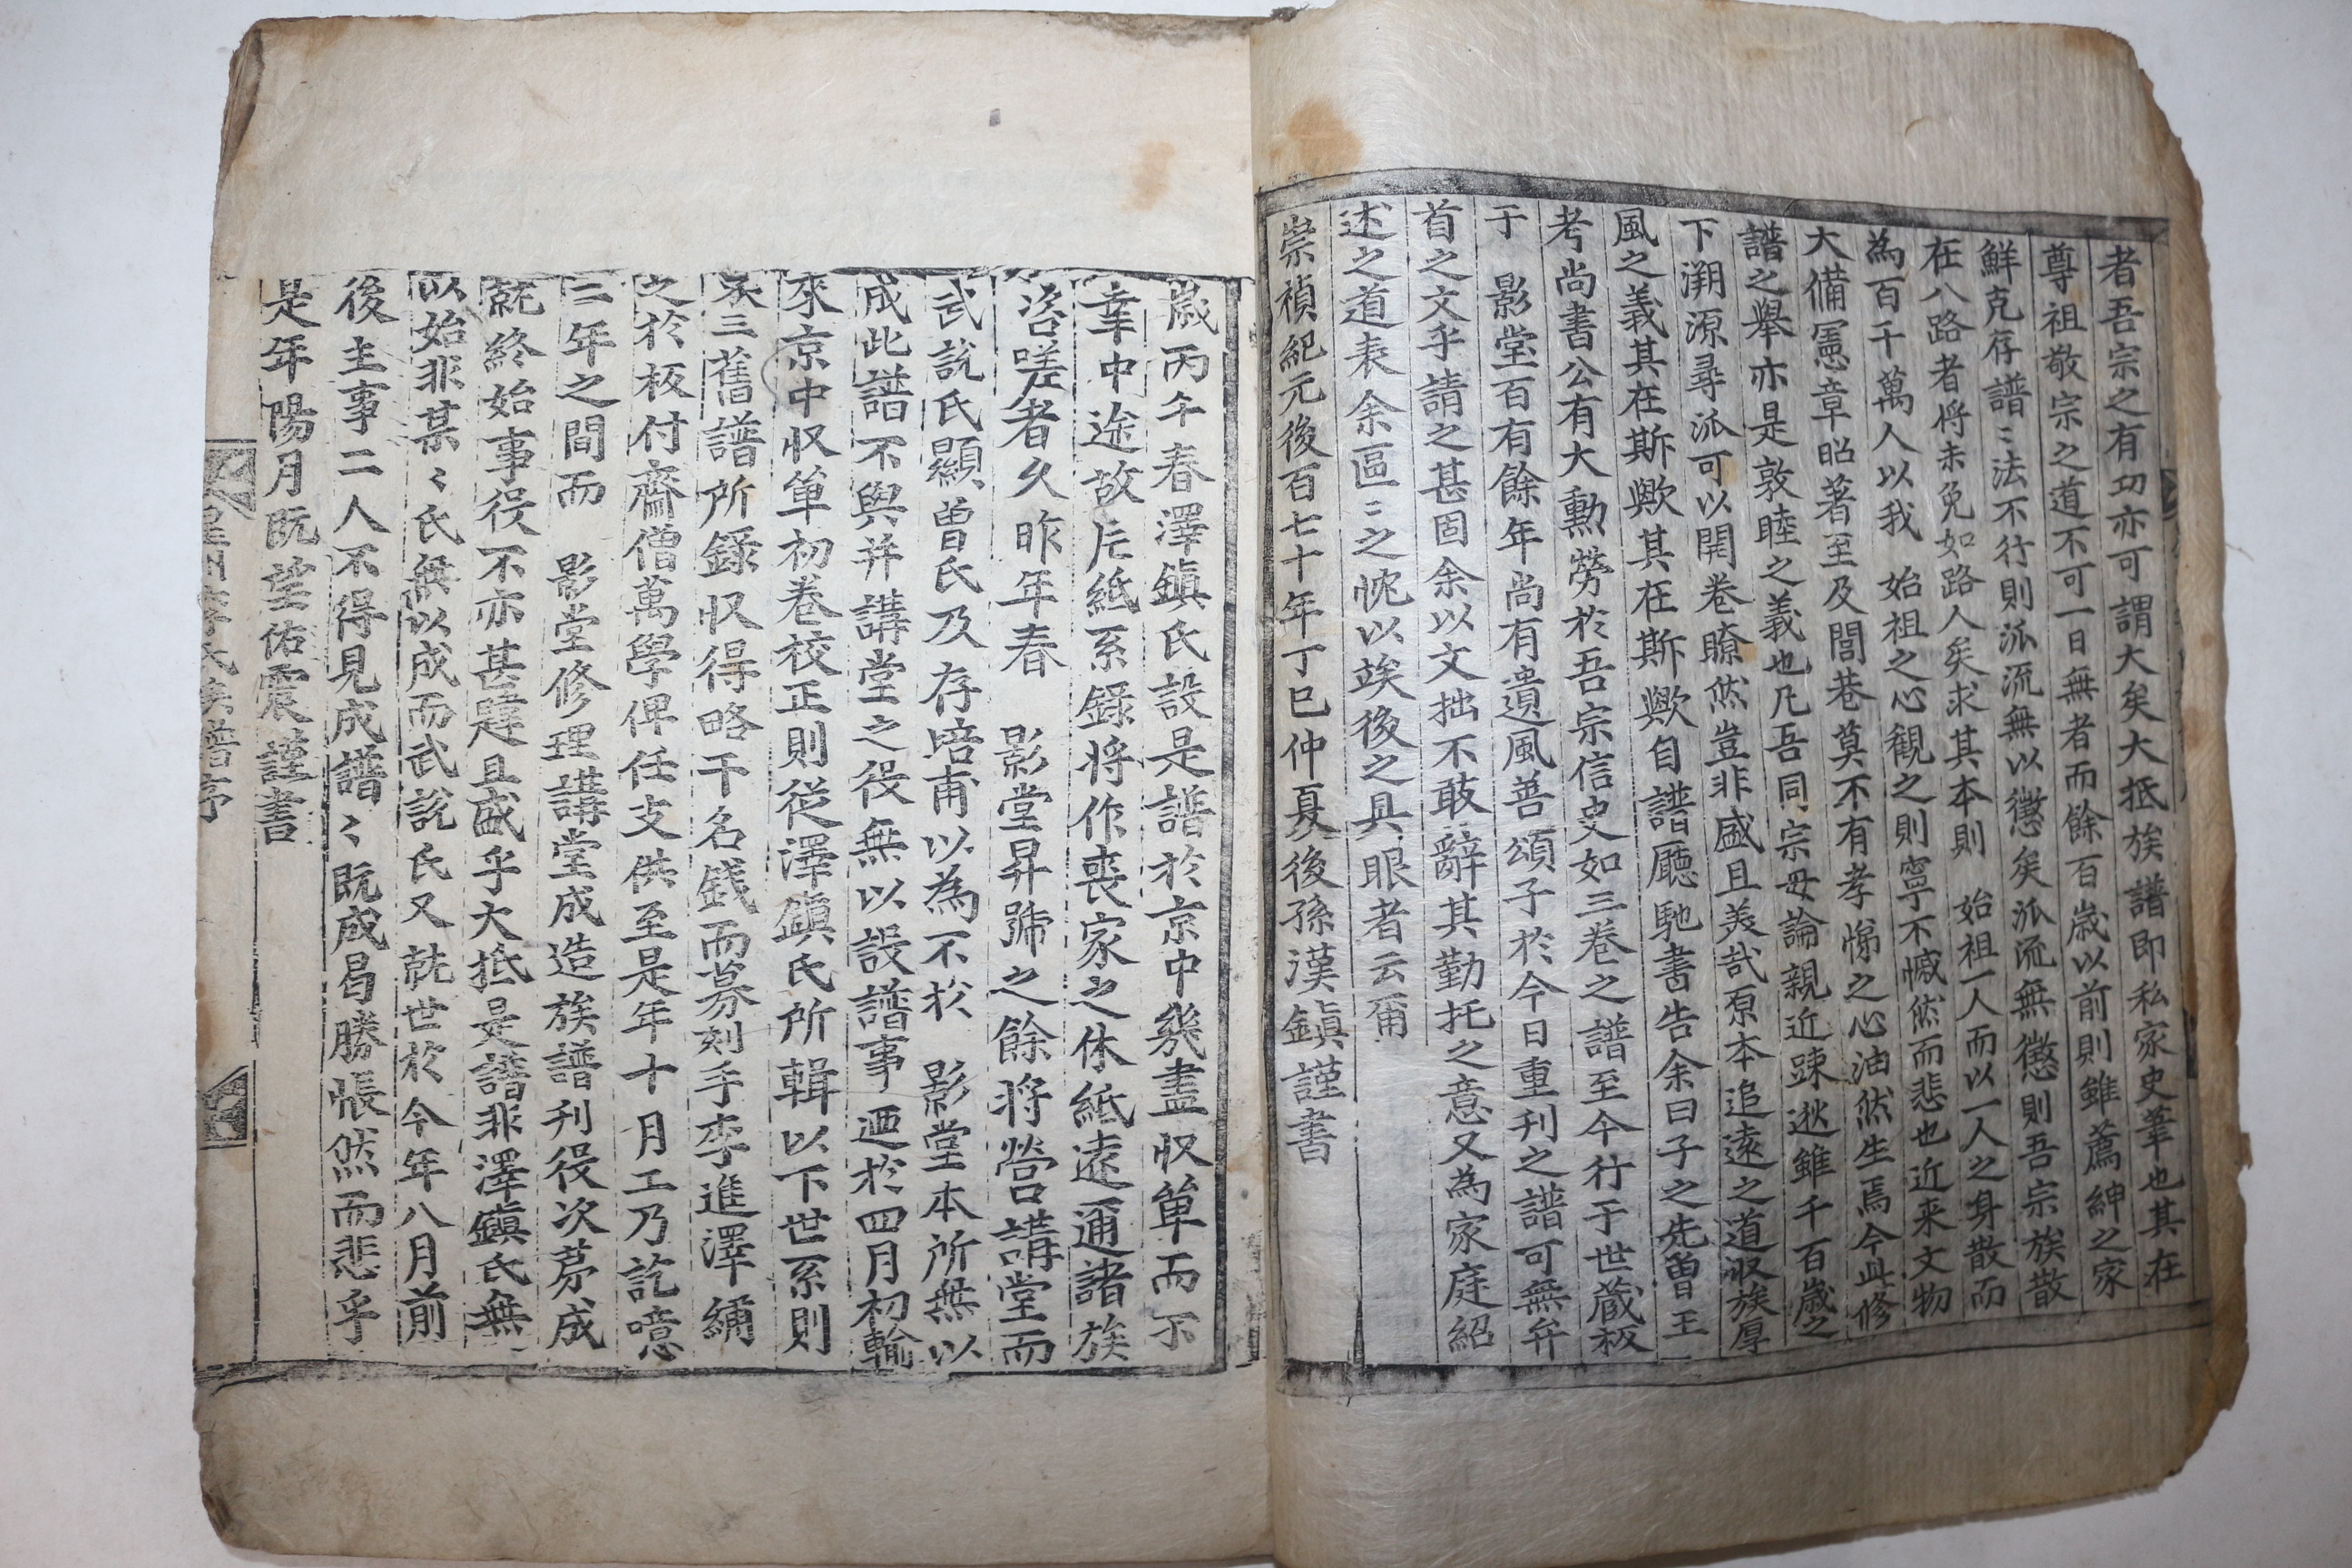 者吾宗之有功亦可謂大矣大抵族譜即私家史筆也其在
尊祖敬宗之道不可一日無者而餘百歲以前則雖薦紳之家
鮮克存譜〻法不行則派流無以懲矣派流無懲則吾宗族散
在八路者將未免如路人矣求其本則 始祖一人而以一人之身散而
為百千萬人以我 始祖之心觀之則寧不慽然而悲也近來文物
大備憲章昭著至及閭巷莫不有孝悌之心油然生焉今此修
譜之舉亦是敦睦之義也凡吾同宗毋論親近踈逖雖千百歲之
下溯源尋派可以開卷瞭然豈非盛且美哉原本追遠之道収族厚
風之義其在斯歟其在斯歟自譜廳馳書告余曰子之先曾王
考尚書公有大勳勞於吾宗信史如三巻之譜至今行于世蔵板
于 影堂百有餘年尚有遺風善頌子於今日重刊之譜可無弁
首之文乎請之甚固余以文拙不敢辭其勤托之意又為家庭紹
述之道表余區〻之忱以竢後之具眼者云爾
崇禎紀元後百七十年丁巳仲夏後孫漢鎭謹書
歲丙午春澤鎭氏設是譜於京中幾盡収單而不
幸中途故片紙系錄將作喪家之休紙遠邇諸族
咨嗟者久昨年春 影堂昇號之餘將營講堂而
武說氏顯曾氏及存培甫以為不於 影堂本所無以
成此譜不與并講堂之役無以設譜事廼於四月初輪
來京中収單初巻校正則從澤鎭氏所輯以下世系則
采三舊譜所錄収得略干名錢而募刻手李進澤繡
之於板付齋僧萬學俾任支供至是年十月工乃訖噫
二年之間而 影堂修理講堂成造族譜刊役次第成
就終始事役不亦甚韙且盛乎大抵是譜非澤鎭氏無
以始非某〻氏無以成而武說氏又就世於今年八月前
後主事二人不得見成譜〻既成曷勝悵然而悲乎
是年陽月既望佑震謹書
星州李氏族譜序